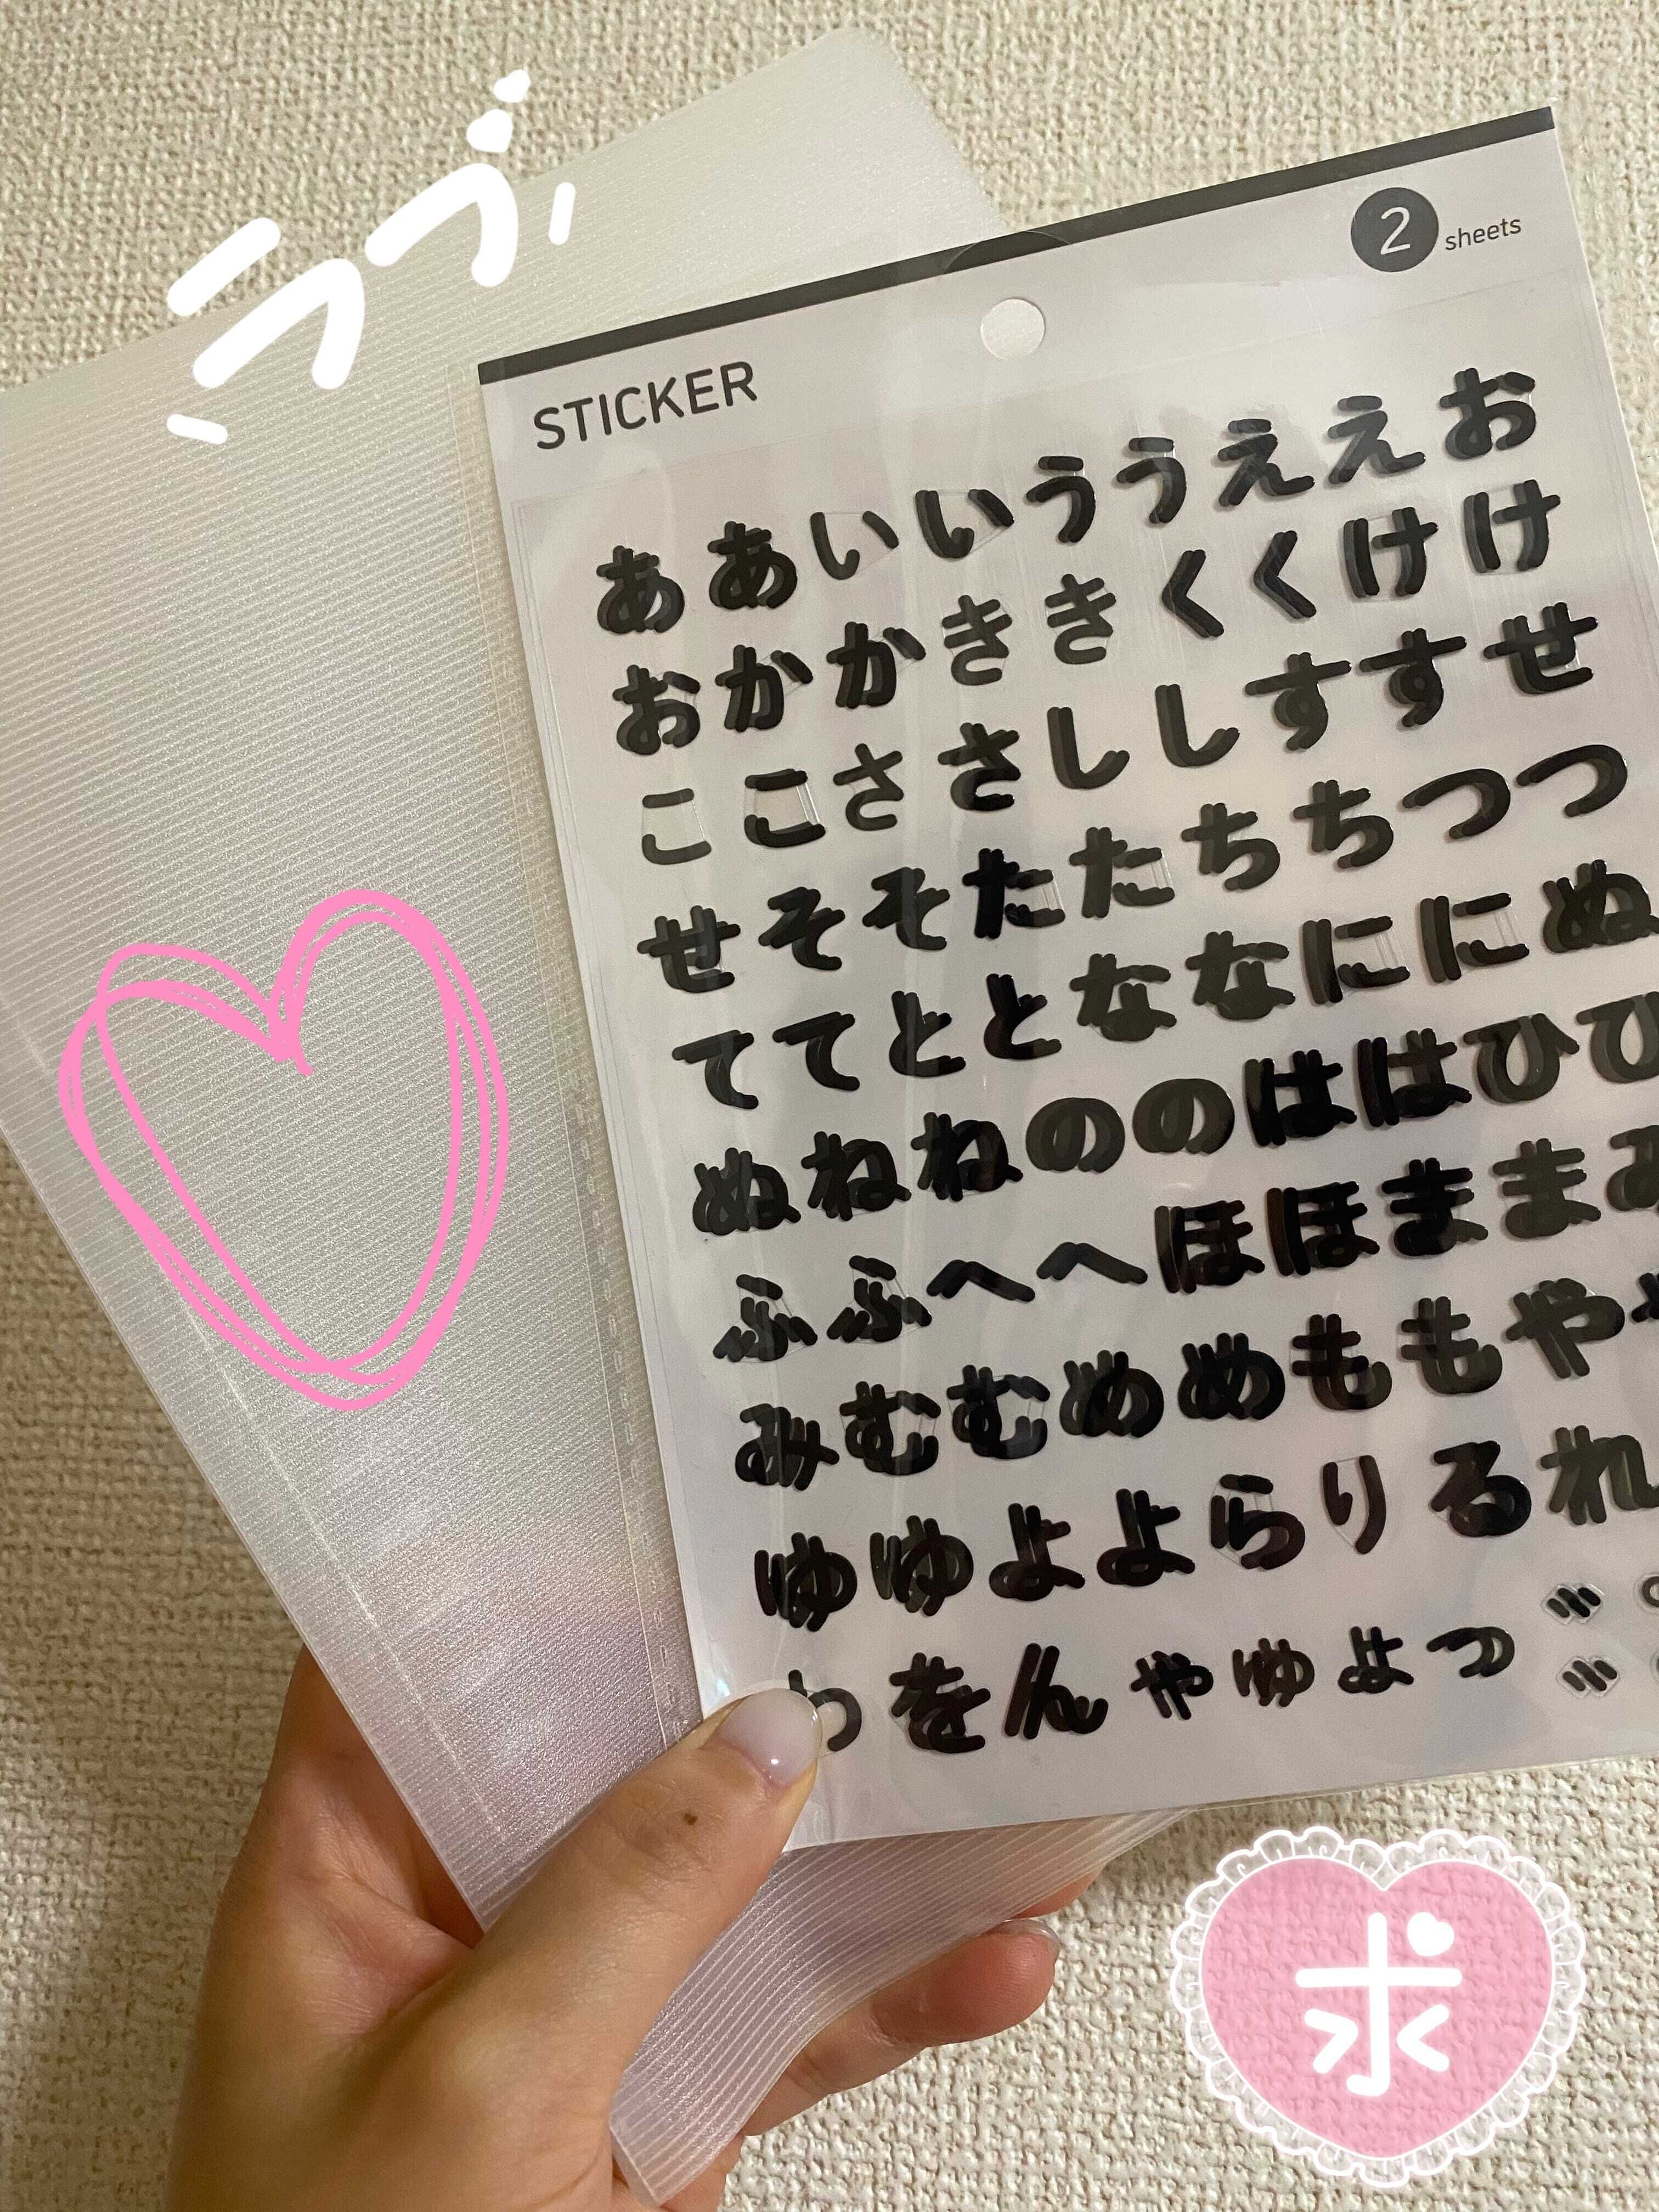 ラブ
2 sheets
STICKER
ああいいううええお
おかかききくくけけ
ここささししすすせ
せそそたたちちつつ
ててととななににぬ
ぬねねののははひひ
ふふへへほほままみ
みむむめめももやや
ゆゆよよらりるれ
わをんゃゅょっ゛゜
゛
求